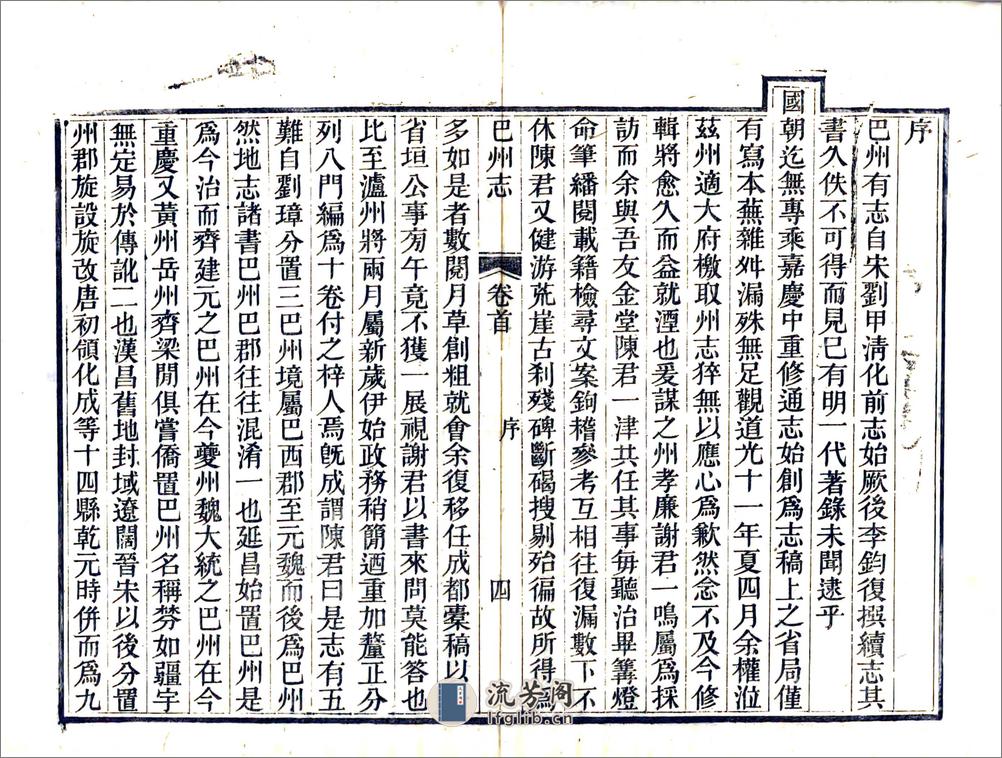 序
巴州有志自宋劉甲淸化前志始厥後李鈞復撰續志其
書久佚不可得而見已有明一代著錄未聞逮乎
國朝迄無專乘嘉慶中重修通志始創爲志稿上之省局僅
有寫本蕪雜舛漏殊無足觀道光十一年夏四月余權涖
茲州適大府檄取州志猝無以應心爲歉然念不及今修
輯將愈久而益就湮也爰謀之州孝廉謝君一鳴屬爲採
訪而余與吾友金堂陳君一津共任其事每聽治畢篝燈
命筆繙閱載籍檢尋文案鉤稽參考互相往復漏數下不
休陳君又健游荒崖古刹殘碑斷碣搜剔殆徧故所得爲
巴州志
卷首
序
四
多如是者數閱月草創粗就會余復移任成都橐稿以
省垣公事旁午竟不獲一展視謝君以書來問莫能答也
比至瀘州將兩月屬新歲伊始政務稍簡迺重加釐正分
列八門編爲十卷付之梓人焉旣成謂陳君曰是志有五
難自劉璋分置三巴州境屬巴西郡至元魏而後爲巴州
然地志諸書巴州巴郡往往混淆一也延昌始置巴州是
爲今治而齊建元之巴州在今夔州魏大統之巴州在今
重慶又黃州岳州齊梁閒俱嘗僑置巴州名稱棼如疆宇
無定易於傳訛二也漢昌舊地封域遼闊晉宋以後分置
州郡旋設旋改唐初領化成等十四縣乾元時併而爲九
流芳阁
lfglib.cn